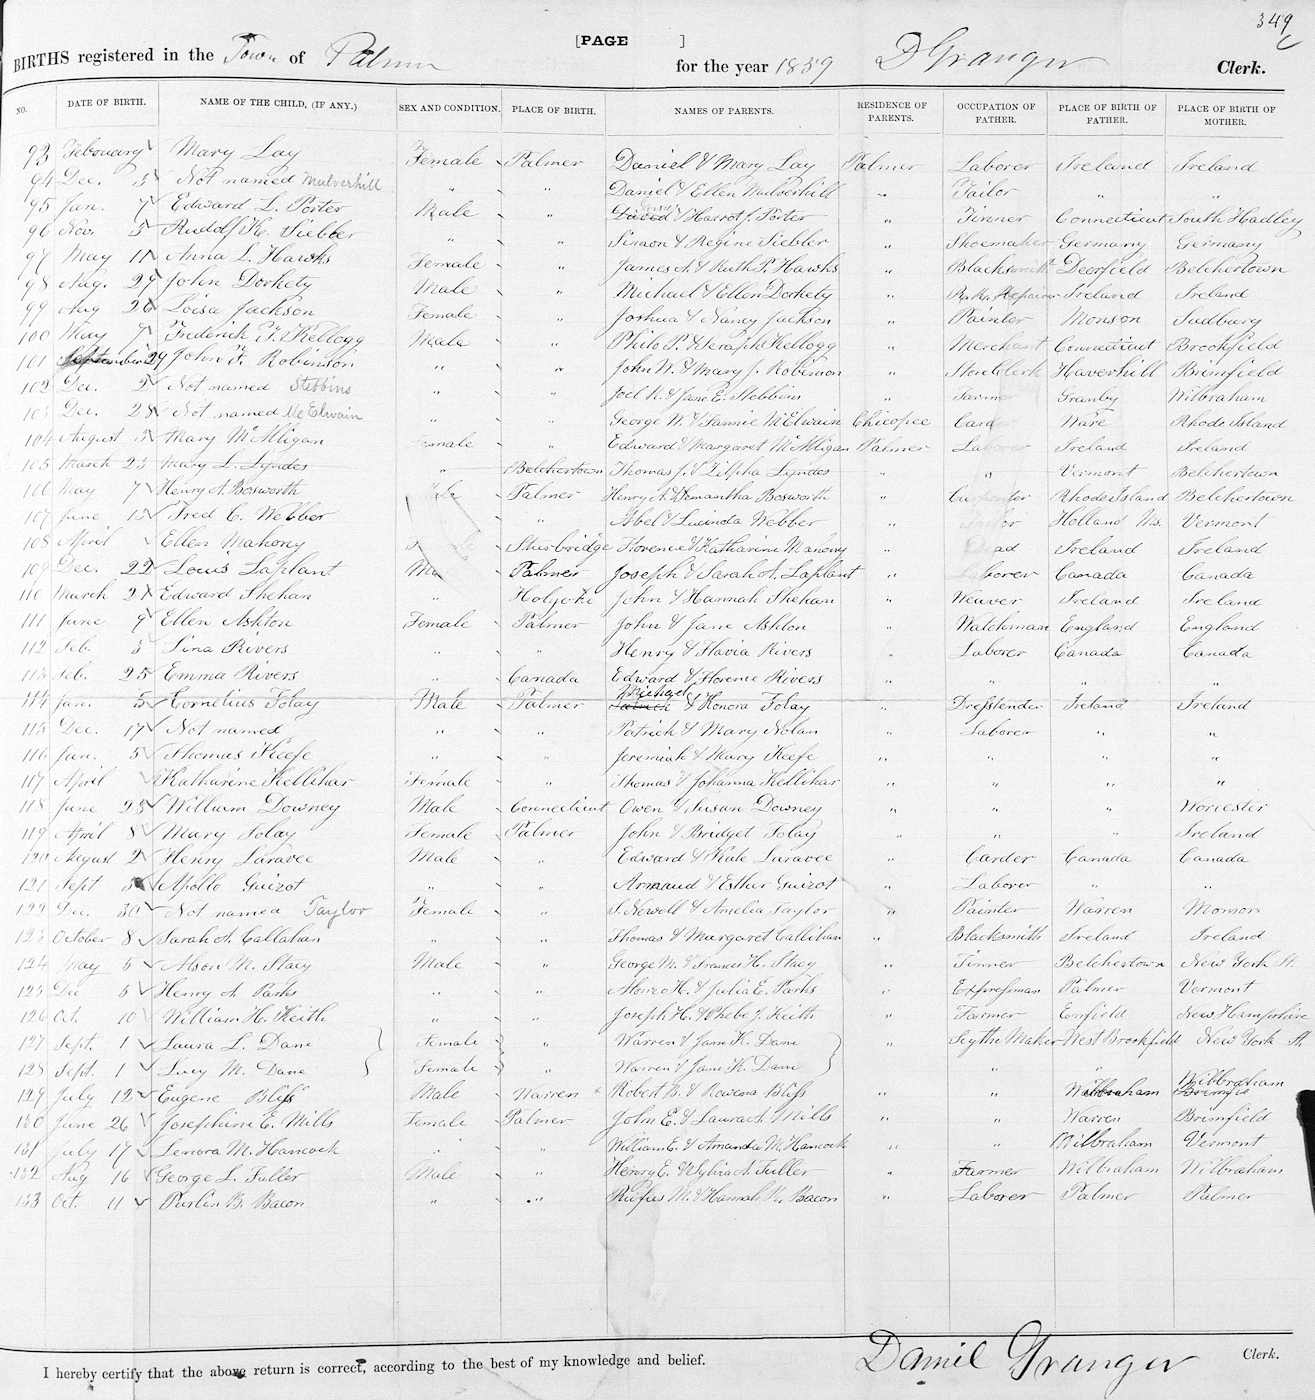 349
[PAGE ]
BIRTHS registered in the Town of Palmer for the year 1859 D Granger Clerk.
NO. DATE OF BIRTH. NAME OF THE CHILD, (IF ANY.) SEX AND CONDITION. PLACE OF BIRTH. NAMES OF PARENTS. RESIDENCE OF PARENTS. OCCUPATION OF FATHER. PLACE OF BIRTH OF FATHER. PLACE OF BIRTH OF MOTHER.
93 February Mary Lay Female Palmer Daniel & Mary Lay Palmer Laborer Ireland Ireland
94 Dec. 5 Not named Mulverhill " " Daniel & Ellen Mulverhill " Tailor " "
95 Jan. 7 Edward L. Porter Male " & Harrot J. Porter " Tinner Connecticut South Hadley
96 Nov. 5 Rudolf K. Siebler " " Simon & Regine Siebler " Shoemaker Germany Germany
97 May 11 Anna L. Hawks Female " James A. & Ruth P. Hawks " Blacksmith Deerfield Belchertown
98 Aug. 29 John Dorkety Male " Michael & Ellen Dorkety " R.R. Repairer Ireland Ireland
99 Aug 26 Loisa Jackson Female " Joshua & Nancy Jackson " Painter Monson Sudbury
100 May 7 Frederick F. Kellogg Male " Philo P. & Seraph Kellogg " Merchant Connecticut Brookfield
101 September 29 John F. Robinson " " John W. & Mary J. Robinson " Store Clerk Haverhill Brimfield
102 Dec. 2 Not named Stebbins " " Joel K. & Jane E. Stebbins " Farmer Granby Wilbraham
103 Dec. 28 Not named McElwain " " George W. & Fannie McElwain Chicopee Carder Ware Rhode Island
104 August 5 Mary McMligan Female " Edward & Margaret McMligan Palmer Laborer Ireland Ireland
105 March 23 Mary L. Lyndes " Belchertown Thomas J. & Zilpha Lyndes " " Vermont Belchertown
106 May 7 Henry A. Bosworth Male Palmer Henry A. & Semantha Bosworth " Carpenter Rhode Island Belchertown
107 June 15 Fred C. Webber " Abel & Lucinda Webber " Tailor Holland Ms. Vermont
108 April Ellen Mahony Sturbridge Florence & Katharine Mahony " Dead Ireland Ireland
109 Dec. 22 Louis Laplant Ma Palmer Joseph & Sarah A. Laplant " Laborer Canada Canada
110 March 21 Edward Shehan " Holyoke John & Hannah Shehan " Weaver Ireland Ireland
111 June 9 Ellen Ashton Female Palmer John & Jane Ashton " Watchman England England
112 Feb. 5 Lina Rivers " " Henry & Flavia Rivers " Laborer Canada Canada
113 Feb. 25 Emma Rivers " Canada Edward & Florence Rivers " " " "
114 Jan. 5 Cornelius Folay Male Palmer Patrick Michael & Honora Folay " Dresstender Ireland Ireland
115 Dec. 17 Not named " " Patrick & Mary Nolan " Laborer " "
116 Jan. 5 Thomas Keefe " " Jeremiah & Mary Keefe " " " "
117 April Katharine Kellihar Female " Thomas & Johanna Kellihar " " " "
118 June 25 William Downey Male Connecticut Owen & Susan Downey " " " Worcester
119 April 8 Mary Folay Female Palmer John & Bridget Folay " " " Ireland
120 August 2 Henry Laravee Male " Edward & Kate Laravee " Carder Canada Canada
121 Sept 5 Apollo Guizot " " Armaud & Esther Guizot " Laborer " "
122 Dec. 30 Not named Taylor Female " S. Newell & Amelia Taylor " Painter Warren Monson
123 October 8 Sarah A. Callahan " " Thomas & Margaret Callihan " Blacksmith Ireland Ireland
124 May 6 Alson M. Stacy Male " George M. & Frances H. Stacy " Tinner Belchertown New York St.
125 Dec 5 Henry A. Parks " " Alonzo H. & Julia E. Parks " Expressman Palmer Vermont
126 Oct. 10 William H. Keith " " Joseph H. & Phebe J. Keith " Farmer Enfield New Hampshire
127 Sept. 1 Laura L. Dane Female " Warren & Jane K. Dane " Scythe Maker West Brookfield New York St.
128 Sept. 1 Lucy M. Dane Female " Warren & Jane K. Dane " " "
129 July 12 Eugene Bliss Male Warren × Robert B. & Rowena Bliss " " Wilbraham Wilbraham
130 June 26 Josephine E. Mills Female Palmer John E. & Laura A. Mills " " Warren Brimfield
131 July 17 Lenora M. Hancock " " William E. & Amanda M. Hancock " " Wilbraham Vermont
132 Aug 16 George L. Fuller Male " Henry E. & Sylvia A. Fuller " Farmer Wilbraham Wilbraham
133 Oct. 11 Parlin B. Bacon " " Rufus M. & Hannah K. Bacon " Laborer Palmer Palmer
I hereby certify that the above return is correct, according to the best of my knowledge and belief. Daniel Granger Clerk.